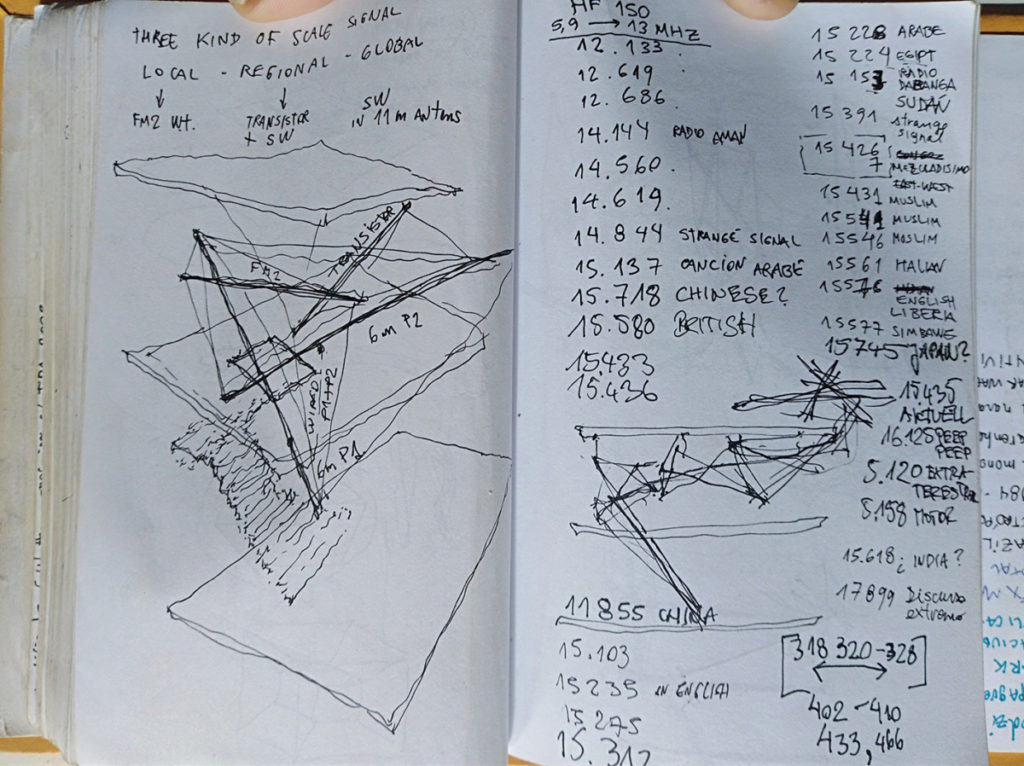 THREE KIND OF SCALE SIGNAL
LOCAL - REGIONAL - GLOBAL
FM2 WT.
TRANSISTOR
+ SW
SW
IN 11 m ANTENS
TRANSISTOR
FM2
6 m P2
VIDEO
P1+P2
6m P1
HF 150
5,9 → 13 MHZ
12.133
12.619
12.686
14.144 RADIO AMAN
14.560
14.619
14.844 STRANGE SIGNAL
15.137 CANCION ARABE
15.718 CHINESE?
15.580 BRITISH
15.433
15.436
11855 CHINA
15.103
15235 IN ENGLISH
15275
15.312
15 228 ARABE
15 224 EGIPT
15 157 RADIO
DABANGA
SUDAN
15 391 strange
signal
15 426
7 MEZCLADISIMO
EAST-WEST
15431 MUSLIM
15541 MUSLIM
15546 MUSLIM
15561
15576
ENGLISH
LIBERIA
15577 SIMBAWE
15745 JAPAN?
15.435
AKTUELL
16.125 PEEP
PEEP
5.120 EXTRA-
TERESTRE
5.198 MOTOR
15.618 ¿ INDIA?
17899 Discurso
extremo
[318 320-328]
402-410
433,466